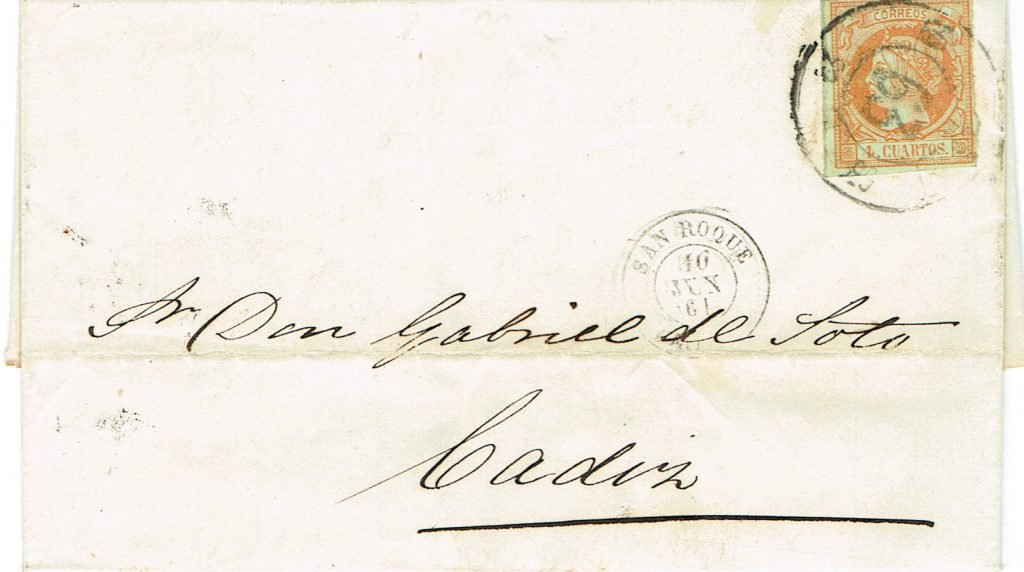 CORREOS
4 CUARTOS.
SAN ROQUE
10
JUN
61
Sr Don Gabriel de Soto
Cadiz